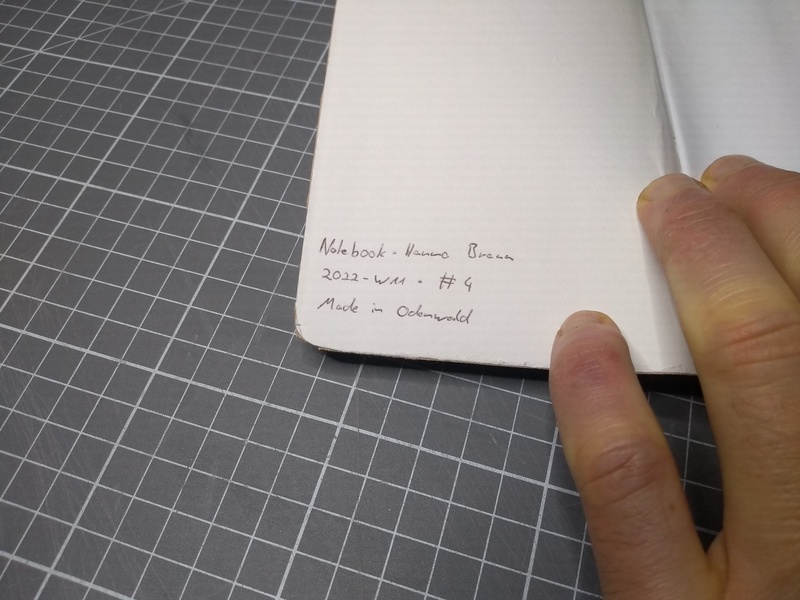 Notebook - Hanno Braun
2022-W11 - #4
Made in Odenwald